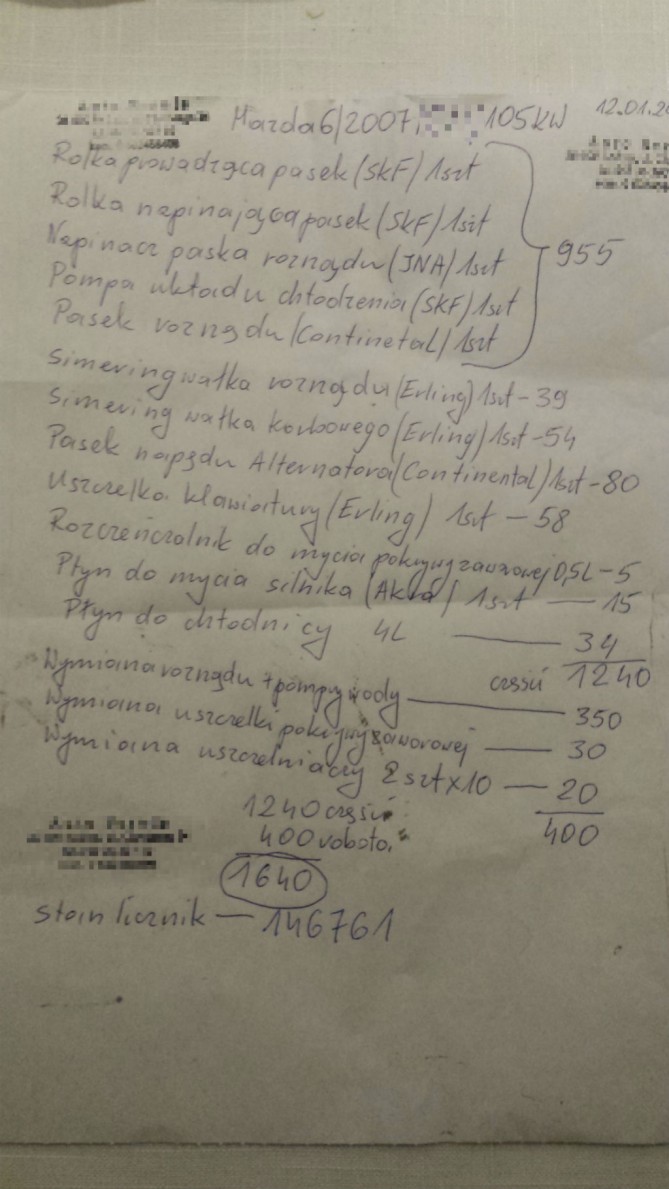 Mazda6/2007, 105kW 12.01.20
Rolka prowadząca pasek (SKF) 1szt
Rolka napinająca pasek (SKF) 1szt
Napinacz paska rozrządu (INA) 1szt
955
Pompa układu chłodzenia (SKF) 1szt
Pasek rozrządu (Continetal) 1szt
Simering wałka rozrządu (Erling) 1szt - 39
Simering wałka korbowego (Erling) 1szt - 54
Pasek napędu Alternatora (Continental) 1szt - 80
Uszczelka klawiatury (Erling) 1szt - 58
Rozcieńczalnik do mycia pokrywy zaworowej 0,5L - 5
Płyn do mycia silnika (Akra) 1szt - 15
Płyn do chłodnicy 4L - 34
części 1240
Wymiana rozrządu + pompy wody - 350
Wymiana uszczelki pokrywy zaworowej - 30
Wymiana uszczelniaczy 2szt x 10 - 20
400
1240 części
400 robota
1640
stan licznik - 146761